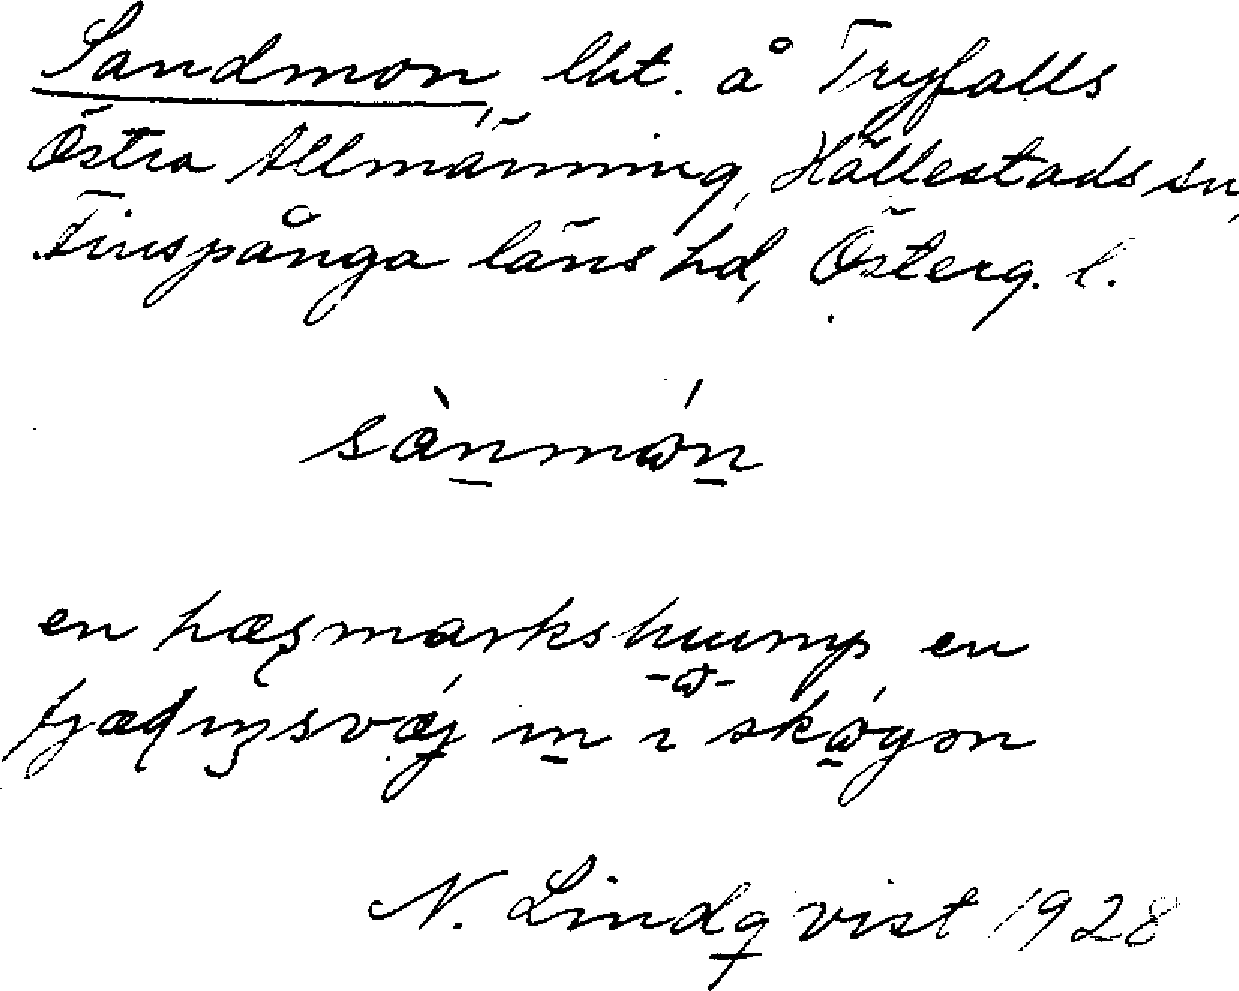 Sandmon, lht. å Tryfalls
Östra Allmänning, Hällestads sn,
Finspånga läns hd, Österg. l.
sànmón
en hæṣmarkshump en
fjæḍiŋsvæj in i skógən
N. Lindqvist 1928